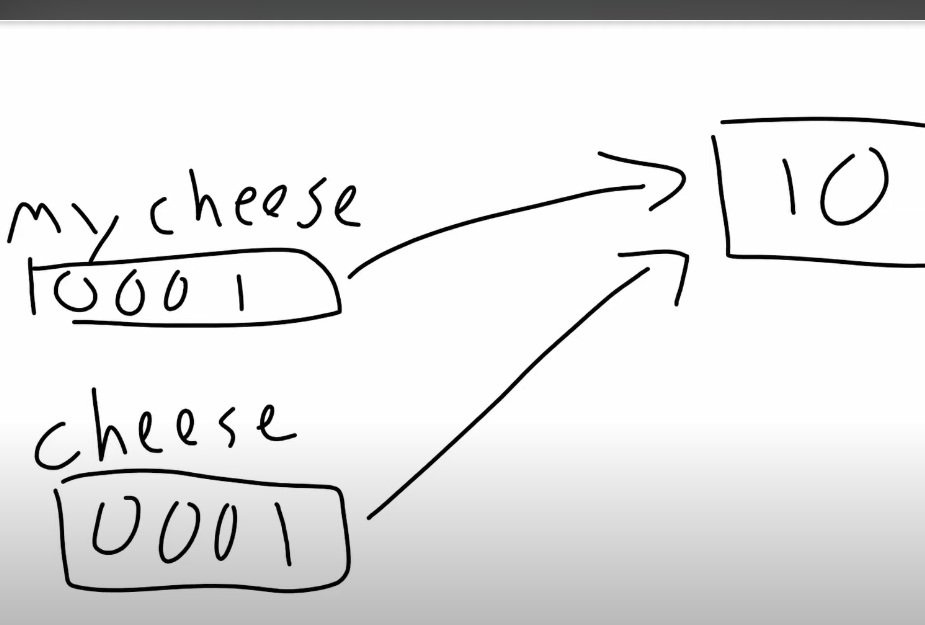 my cheese
0001
10
cheese
0001